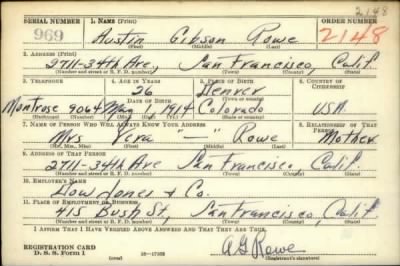 2148
SERIAL NUMBER 1. NAME (Print) ORDER NUMBER
969 Austin Gibson Rowe 2148
(First) (Middle) (Last)
2. ADDRESS (Print)
2711-34th Ave, San Francisco, Calif
(Number and street or R. F. D. number) (Town) (County) (State)
3. TELEPHONE 4. AGE IN YEARS 5. PLACE OF BIRTH 6. COUNTRY OF CITIZENSHIP
26 Denver
DATE OF BIRTH (Town or county)
Montrose 9064 May 1, 1914 Colorado U.S.A.
(Exchange) (Number) (Mo.) (Day) (Yr.) (State or country)
7. NAME OF PERSON WHO WILL ALWAYS KNOW YOUR ADDRESS 8. RELATIONSHIP OF THAT PERSON
Mrs Vera "—" Rowe Mother
(Mr., Mrs., Miss) (First) (Middle) (Last)
9. ADDRESS OF THAT PERSON
2711-34th Ave San Francisco Calif
(Number and street or R. F. D. number) (Town) (County) (State)
10. EMPLOYER'S NAME
Dow Jones & Co.
11. PLACE OF EMPLOYMENT OR BUSINESS
415 Bush St, San Francisco, Calif
(Number and street or R. F. D. number) (Town) (County) (State)
I AFFIRM THAT I HAVE VERIFIED ABOVE ANSWERS AND THAT THEY ARE TRUE.
REGISTRATION CARD
D. S. S. Form 1 16-17105 A G Rowe
(Registrant's signature)